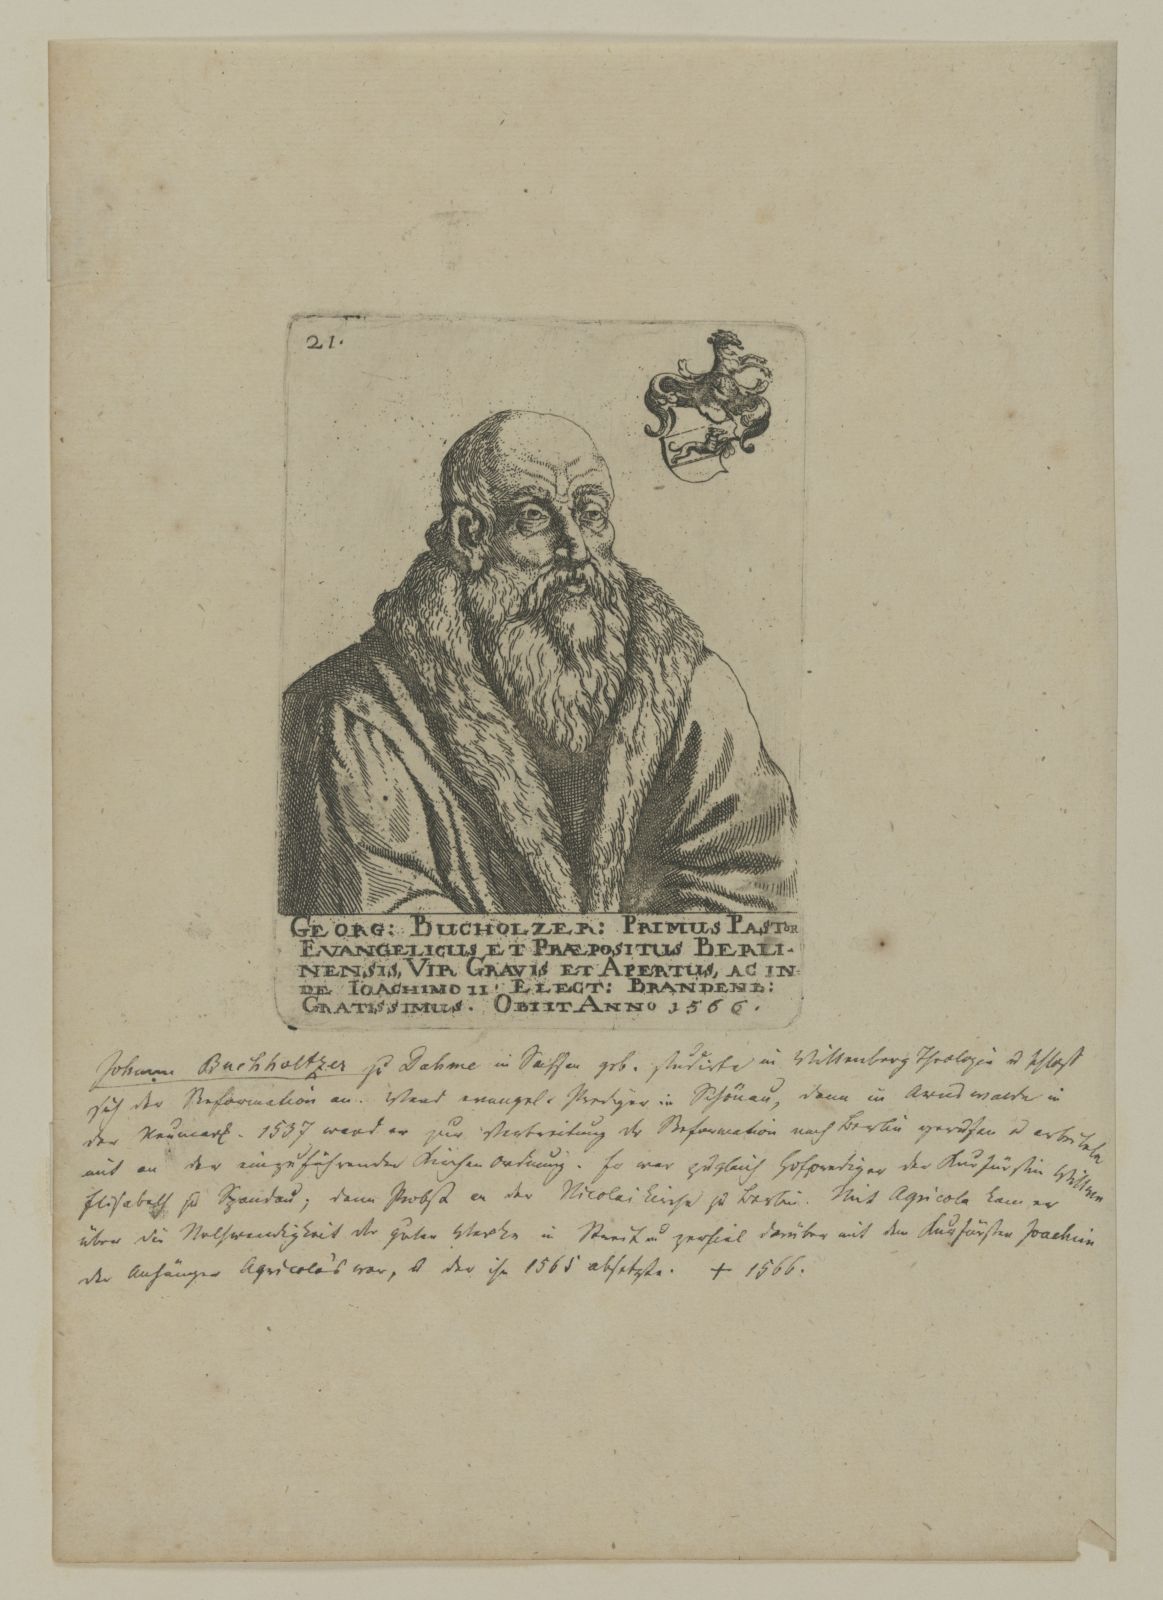 21.
GEORG: BUCHOLZER: PRIMUS PASTOR
EVANGELICUS ET PRÆPOSITUS BERLI-
NENSIS, VIR GRAVIS ET APERTUS, AC IN-
DE IOACHIMO II: ELECT: BRANDENB:
GRATISSIMUS. OBIIT ANNO 1566.
Johann Buchholtzer zu Dahme in Sachsen geb. studirte in Wittenberg Theologie u schloß
sich der Reformation an. Ward evangel. Prediger in Schönau, dann in Arnswalde in
der Neumark. 1537 ward er zur Verbreitung der Reformation nach Berlin gerufen u arbeitete
mit an der einzuführenden Kirchenordnung. Er war zugleich Hofprediger der Kurfürstin Wittwe
Elisabeth zu Spandau; dann Probst an der Nicolaikirche zu Berlin. Mit Agricola kam er
über die Nothwendigkeit der guten Werke in Streit u zerfiel darüber mit dem Kurfürsten Joachim
der Anhänger Agricola's war, u der ihn 1565 absetzte. + 1566.